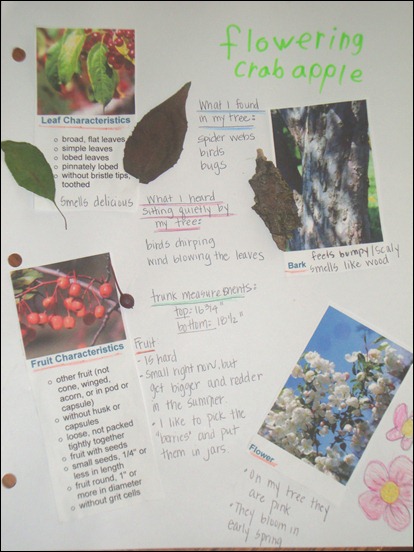 flowering
crab apple
Leaf Characteristics
broad, flat leaves
simple leaves
lobed leaves
pinnately lobed
without bristle tips,
toothed
smells delicious
What I found
in my tree:
spider webs
birds
bugs
What I heard
sitting quietly by
my tree:
birds chirping
wind blowing the leaves
Bark feels bumpy/scaly
smells like wood
trunk measurements:
top: 16 3/4"
bottom: 18 1/2"
Fruit Characteristics
other fruit (not
cone, winged,
acorn, or in pod or
capsule)
without husk or
capsules
loose, not packed
tightly together
fruit with seeds
small seeds, 1/4" or
less in length
fruit round, 1" or
more in diameter
without grit cells
Fruit
- is hard
- small right now, but
get bigger and redder
in the summer.
- I like to pick the
"berries" and put
them in jars.
Flower
- On my tree they
are pink
- They bloom in
early spring